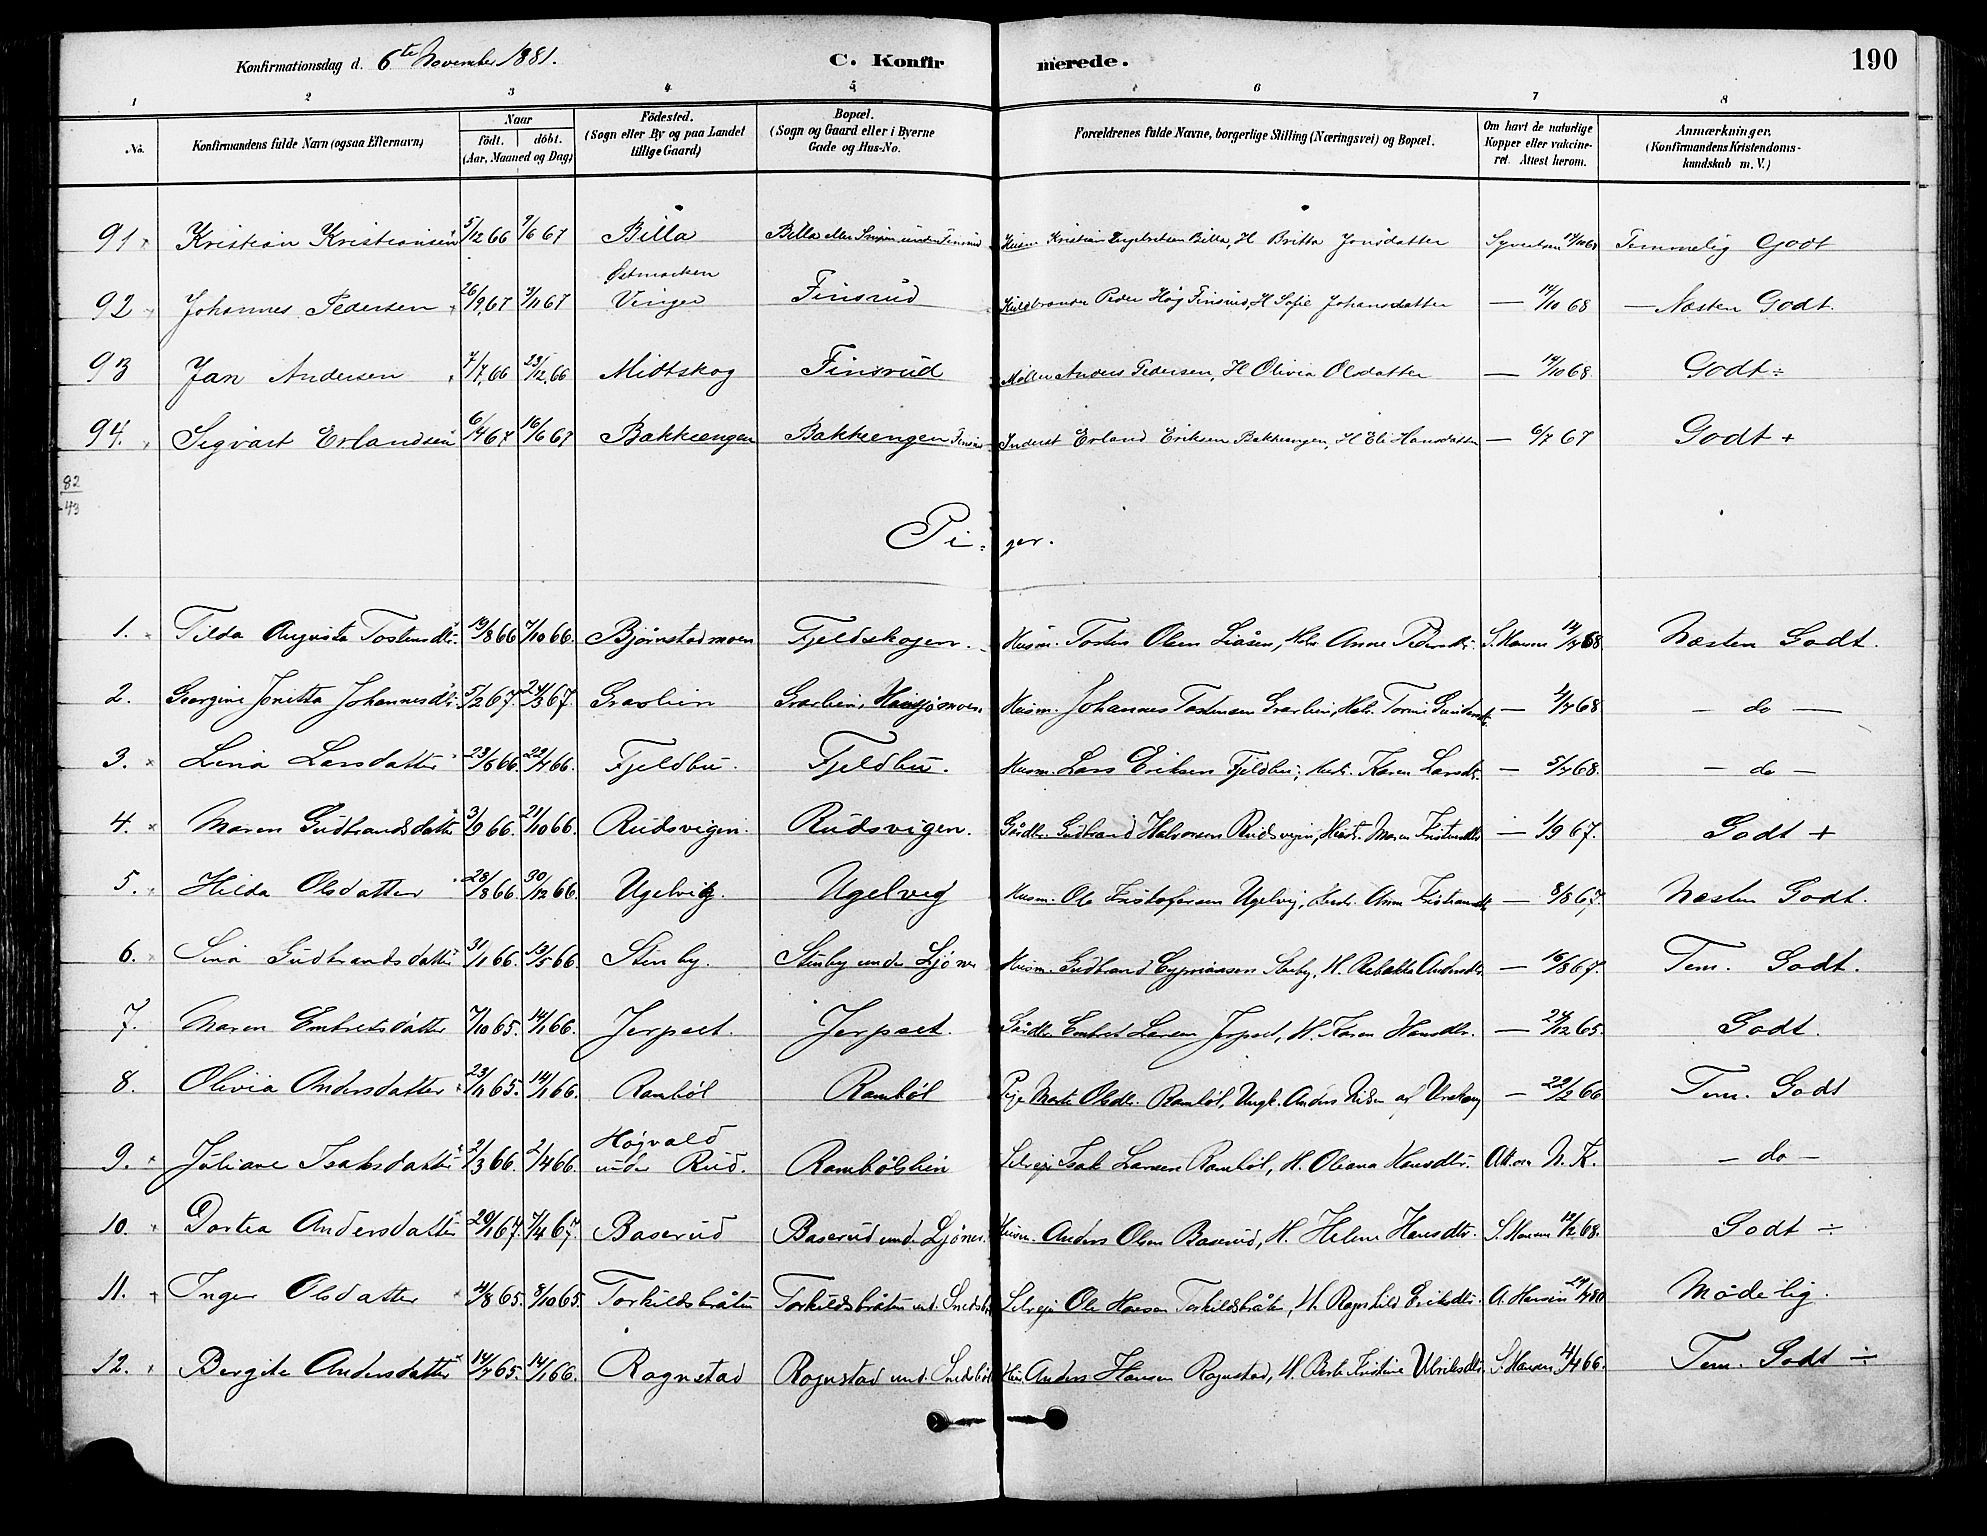 Konfirmationsdag d. 6te November 1881. C. Konfirmerede. 190
1 2 3 4 5 6 7 8
No. Konfirmandens fulde Navn (ogsaa Efternavn) Naar født. døbt. (Aar, Maaned og Dag) Fødested. (Sogn eller By og paa Landet tillige Gaard) Bopæl. (Sogn og Gaard eller i Byerne Gade og Hus-No. Forældrenes fulde Navne, borgerlige Stilling (Næringsvei) og Bopæl. Om havt de naturlige Kopper eller vakcineret. Attest herom. Anmærkninger. (Konfirmandens Kristendomskundskab m. V.)
91 Kristian Kristiansen 5/12 66 9/6 67 Billa Billa eller under Finsrud Husm Kristian Billa, H Britta Jonsdatter 68 Temmelig Godt
92 Johannes Pedersen 26/9 67 3/11 67 Østmarken Vinger Finsrud Peder Høg Finsrud, H Sofie Johansdatter — 14/10 68 — Næsten Godt.
93 Jan Andersen 7/7 66 23/12 66 Midtskog Finsrud Møller Anders Pedersen, H Olivia Olsdatter — 14/10 68. Godt ÷
94. Sigvart Erlandsen 6/4 67 16/6 67 Bakkeengen Bakkeengen Inderst Erland Eriksen Bakkeengen, H Eli Hansdatter — 6/7 67 Godt +
82
43
Piger.
1. Tilda Augusta Tostensdtr. 19/8 66 7/10 66. Bjørnstadmoen Fjeldskogen. Husm. Tosten Olsen Liåsen, Anne S. Hansen 68 Næsten Godt.
2. Georgine Jonetta Johannesdtr. 5/2 67. 24/3 67. Gravlien Husm. Johannes Tostensen — 4/7 68 — do —
3. Lina Larsdatter 23/ 66. 22/ 66. Fjeldbu. Fjeldbu. Husm. Lars Eriksen Fjeldbu, Karen Larsdtr. — 5/7 68. — do —
4. Maren Gudbrandsdatter 3/9 66. 21/10 66. Rudsvigen. Rudsvigen. Gårdbr. Gudbrand Halvorsen Rudsvigen, Maren — 1/9 67. Godt +
5. Hilda Olsdatter 28/8 66. 30/12 66. Ugelvig. Ugelvig Husm. Ole Kristofersen Ugelvig, Anne — 8/8 67. Næsten Godt.
6. Sina Gudbrandsdatter 31/1 66. 13/5 66. Stenby. Stenby under Ljøner Husm. Gudbrand Cyprianssen H. Rebekka Andersdtr. — 16/8 67. Tem. Godt.
7. Maren Embretsdatter 7/10 65. 14/1 66. Jerpset. Jerpset. Gårdbr. Embret Larsen Jerpset, H. Karen Hansdtr. — 24/12 65. Godt.
8. Olivia Andersdatter 23/11 65. 14/1 66. Rambøl Rambøl Pige Marte Olsdtr. Rambøl, Ungk. Anders Nilsen af Urskoug — 22/2 66 Tem. Godt
9. Juliane Isaksdatter 2/3 66. 2/4 66. Højvald under Rud. Rambølshien Selvejer Isak Larsen Rambøl, H. Oleana Hansdtr. N. K. — do —
10. Dortea Andersdatter 20/1 67. 7/4 67. Baserud Baserud und. Ljøner. Husm. Anders Olsen Baserud, H. Helene Hansdtr. S. Hansen 12/2 68. Godt ÷
11. Inger Olsdatter 4/8 65. 8/10 65. Torkildsbråten Torkildsbråten und. Snedsbøl Selvejer Ole Hansen Torkildsbråten, H. Ragnhild Eriksdtr. A. Hansen 80 Mådelig.
12. Bergite Andersdatter 14/ 65. 14/1 66. Rognstad Rognstad und. Snedsbøl Anders Hansen Rognstad, H. Berte Kristine Ulriksdtr. S. Hansen 4/4 66. Tem. Godt ÷